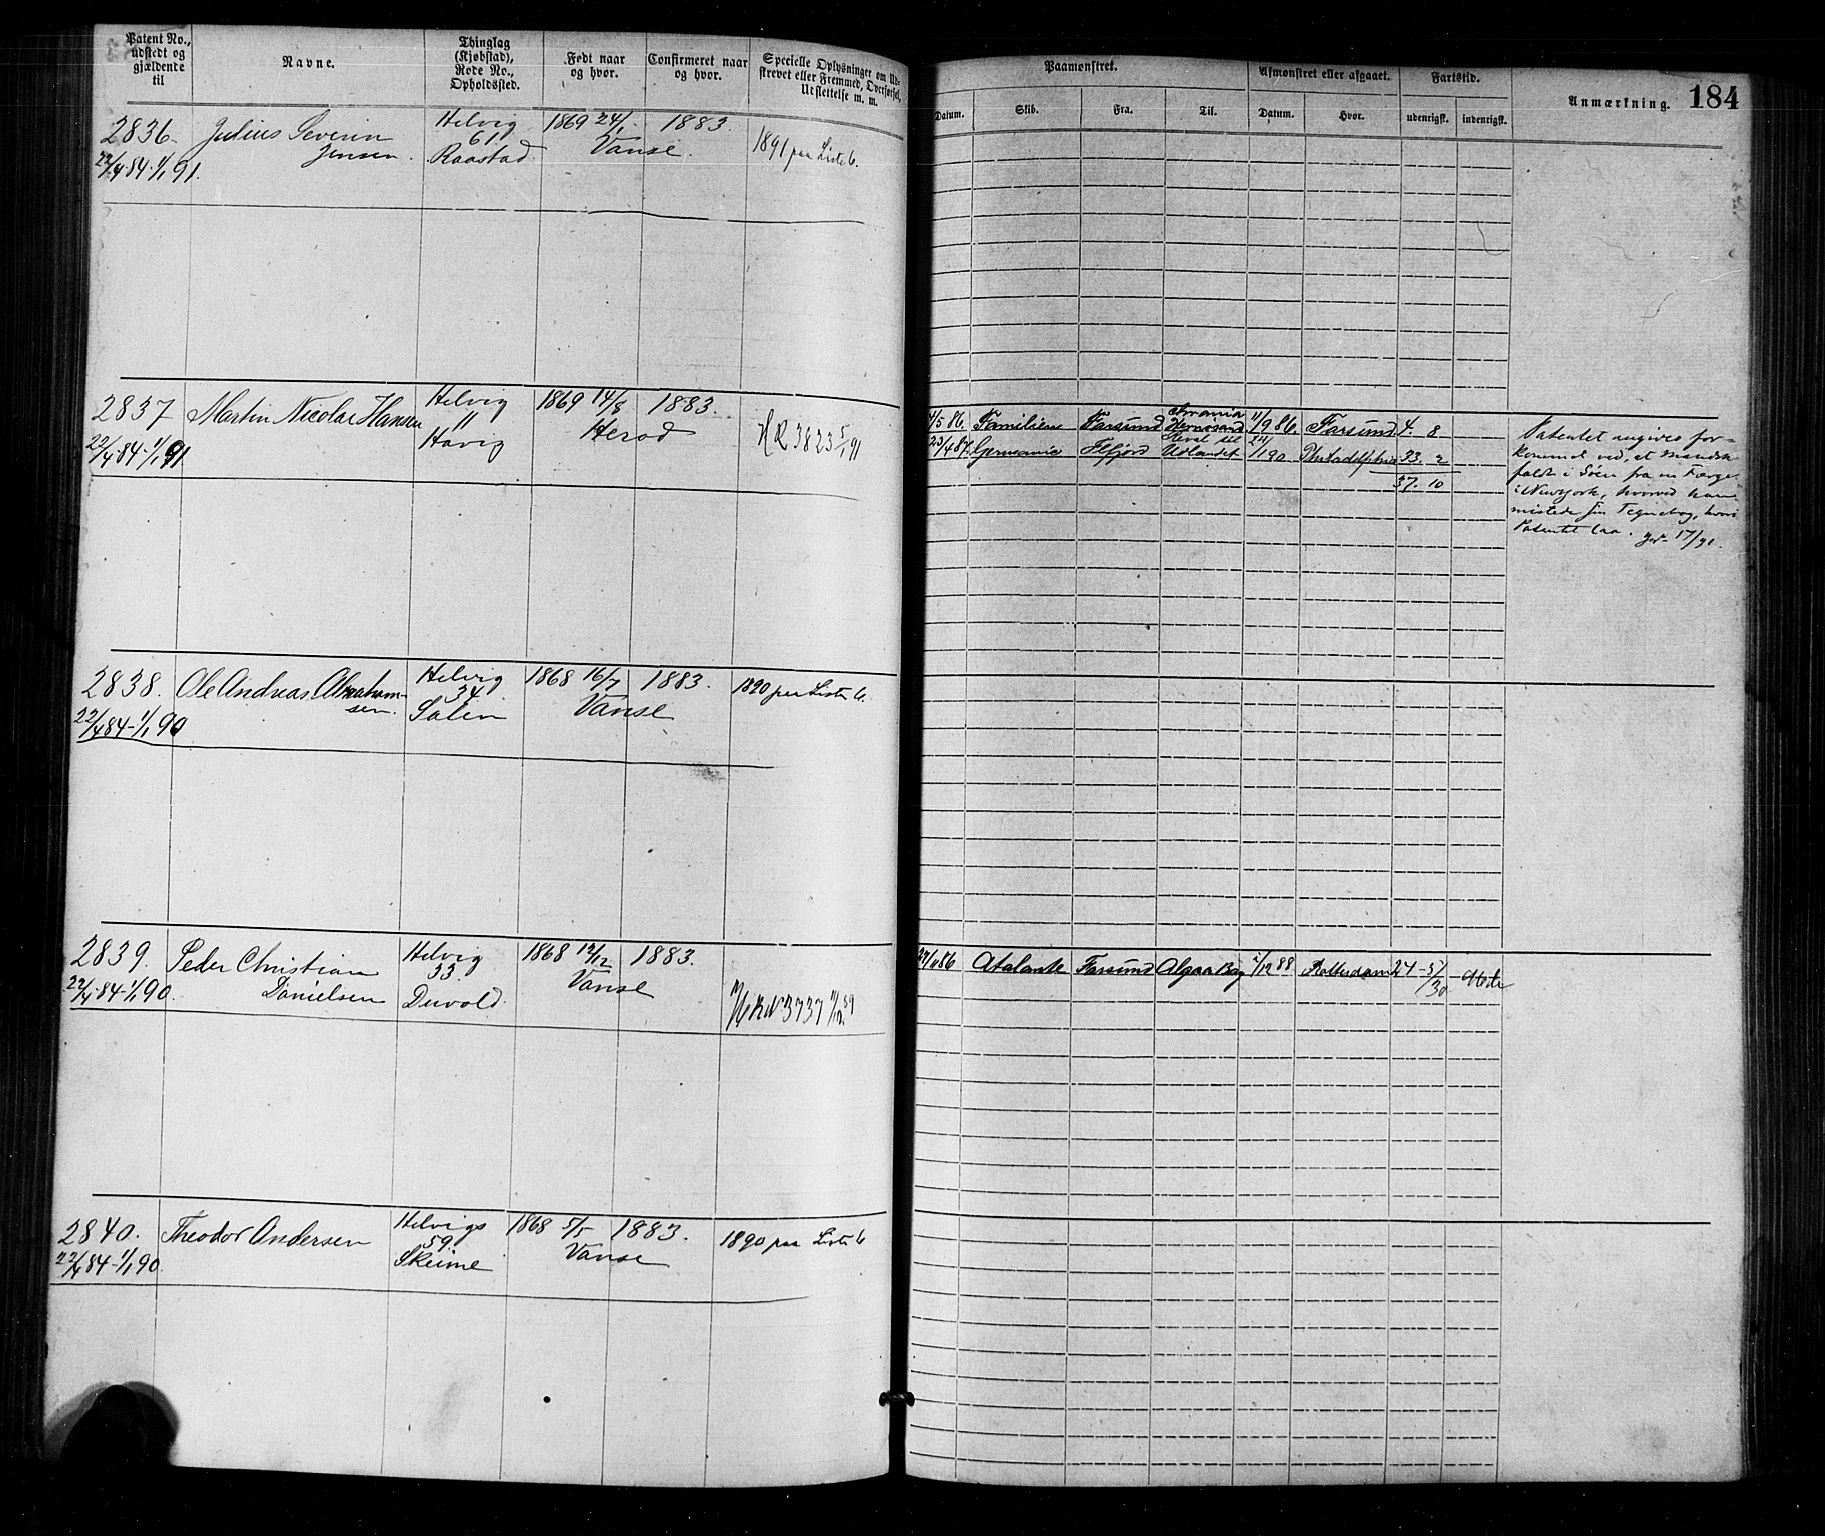 Patent No., udstedt og gjældende til
Navne.
Thinglag (Kjøbstad), Rode No., Opholdssted.
Født naar og hvor.
Confirmeret naar og hvor.
Specielle Oplysninger om Ud-
skrevet eller Fremmed, Overførsel,
Udslettelse m. m.
2836. Julius Severin Helvig 1869 24/1 1883.
Jensen. 61. Vanse. 1891 paa Liste 6.
22/4 84-1/1 91. Raastad.
2837 Martin Nicolai Hansen Helvig 1869 14/8 1883.
" Herod
22/4 84-1/1 91 Havig HR 3823 5/1 91
2838. Ole Andreas Abraham- Helvig 1868 16/7 1883. 1890 paa Liste 6.
sen. 34 Vanse
22/4 84-1/1 90
2839. Peder Christian Helvig 1868 12/12 1883.
Danielsen 33 Vanse
22/4 84-1/1 90. 3737
2840. Theodor Andersen Helvigs 1868 5/5 1883. 1890 paa Liste 6
59 Vanse
22/4 84-1/1 90. Skeime
Paamønstret.
Afmønstret eller afgaaet.
Fartstid.
Anmærkning. 184
Datum. Skib. Fra. Til. Datum. Hvor. udenrigsk. indenrigsk.
4/5 86. Familien Farsund Hernøsand 11/9 86. Farsund 4. 8
23/4 87. Germania Flifjord Udlandet 24/1 90 Philadelphia 33. 2
37. 10
Patentet angives for-
kommet ved, at Manden
faldt i Søen fra en Færge
i Newyork, hvorved han
mistede sin Tegnebog, hvori
Patentet laa.
86 Atalante Farsund Algoa Bay /12 88 Rotterdam 24 - 5/30